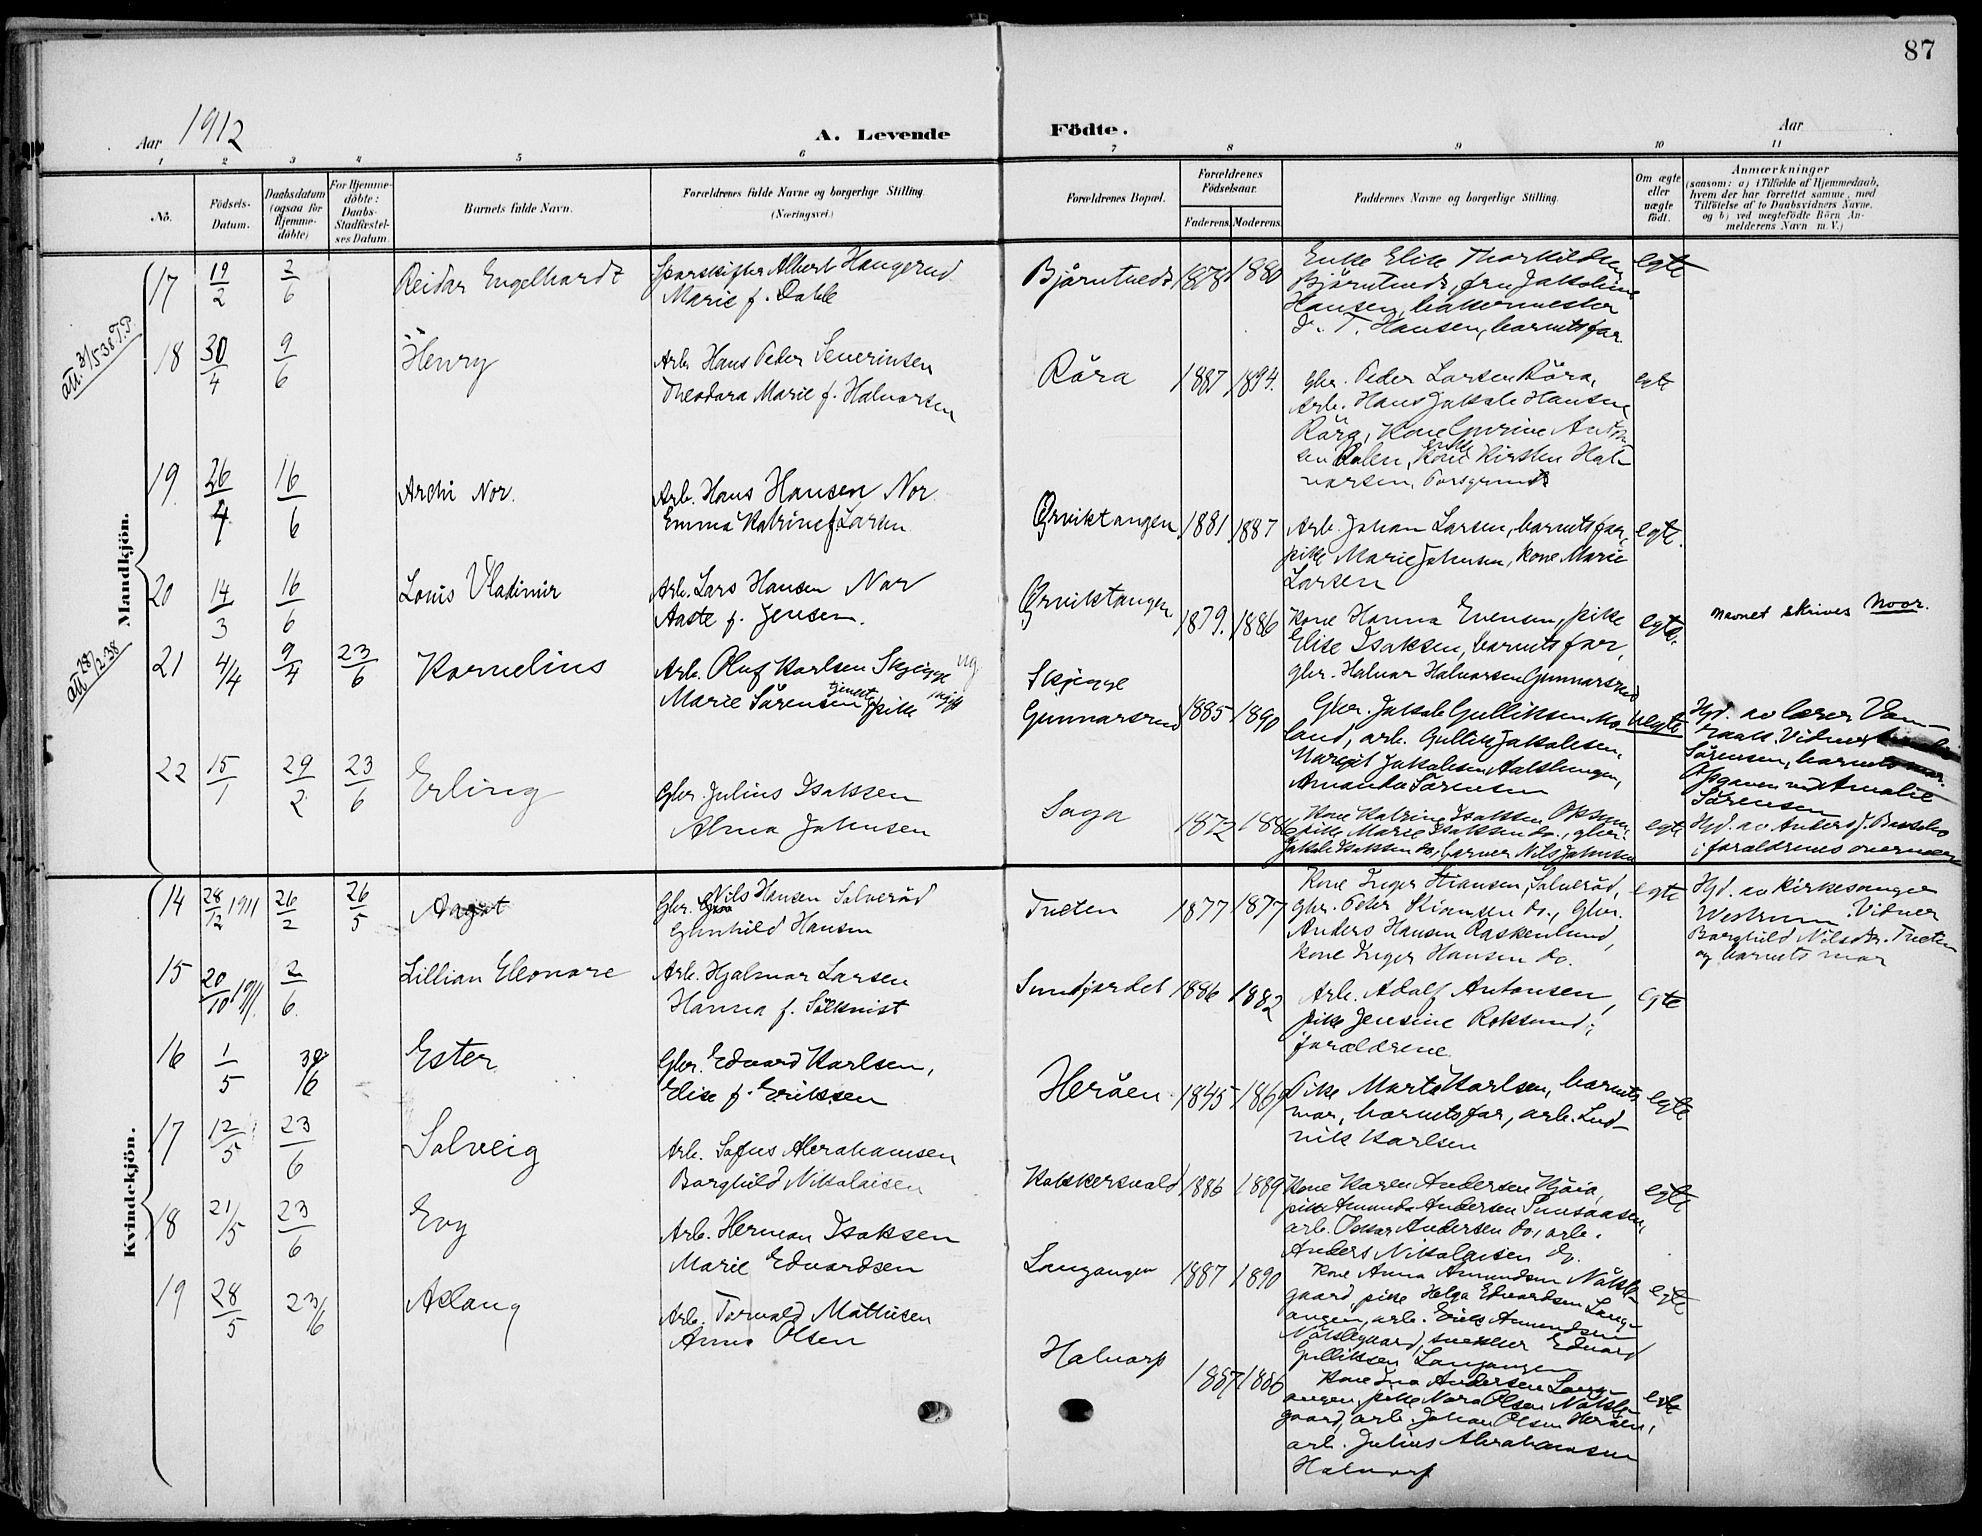 87
Aar 1912
A. Levende
Födte.
Aar
1 2 3 4 5 6 7 8 9 10 11
No.
Födsels-
Datum.
Daabsdatum
(ogsaa for
Hjemme-
döbte)
For Hjemme-
döbte:
Daabs-
Stadfæstel-
ses Datum.
Barnets fulde Navn.
Forældrenes fulde Navne og borgerlige Stilling.
(Næringsvei.)
Forældrenes Bopæl.
Forældrenes
Födselsaar.
Faderens. Moderens.
Faddernes Navne og borgerlig Stilling.
Om ægte
eller
uægte
födt.
Anmærkninger
(saasom: a) i Tilfælde af Hjemmedaab,
hvem der har forrettet samme, med
Tilföielse af to Daabsvidners Navne,
og b) ved uægtefödte Börn An-
melderens Navn m. V.)
Mandkjön.
17 19/2 2/6 Reidar Engelhardt
Sporskifter Albert Haugerud
Marie f. Dahle
Björntvedt 1878 1880
Enke Elise Thorkildsen
Björntvedt, fru Jakobine
Hansen, bakermester
T. Hansen, barnets far
egte
att. 3/5 38 T.P
18 30/4 9/6 Henry
Arb. Hans Peder Severinsen
Theodora Marie f. Halvorsen
Röra 1887 1894.
Gbr. Peder Larsen Röra,
Arb. Hans Jakob Hansen
Röra, kone Gurine Anton
sen Dalen, enke Kirsten Hal
vorsen, Porsgrund
egte
19. 26/4 16/6 Archi Nor.
Arb. Hans Hansen Nor
Emma Katrine f. Larsen
Ørviktangen 1881 1887
Arb. Johan Larsen, barnets far,
pike Marie Johnsen, kone Marie
Larsen
egte.
20 14/3 16/6 Louis Vladimir
Arb. Lars Hansen Nor
Aaste f. Jensen.
Ørviktangen 1879. 1886
Kone Hanna Evensen, pike
Elise Isaksen, barnets far,
gbr. Halvor Halvorsen Gunnarsrud
egte.
navnet skrives Noor.
att 28/2-38
21 4/4 9/4 23/6 Kornelius
Arb. Oluf Karlsen Skjegge ug.
Marie Sörensen tjenestepike ugift
Skjegge
Gunnarsrud 1885 1890
Gbr. Jakob Gulliksen Mo
land, arb. Gullik Jakobsen,
Margit Jakobsen,
Amanda Sörensen
uegte
Hjd. av lærer
Vidner
Sörensen, barnets mor.
Opgaven ved Amalie
Sörensen
22 15/1 29/2 23/6 Erling
Gbr. Julius Isaksen
Alma Johnsen
Saga 1872
Kone Katrine Isaksen
pike Marie Isaksen do., gbr.
Jakob Isaksen do., Nils Johnsen
egte
Hjd. av Anders J.
i forældrenes nærvær
Kvindekjön.
14 28/12 1911 26/2 26/5 Aagot
Gbr. Nils Hansen Solveröd
Gunhild Hansen
Tveten 1877 1877
Kone Inger Hansen, Solveröd,
Gbr. Peter do., Gbr.
Anders Hansen
kone Inger Hansen do.
egte
Hjd. av kirkesanger
Westrum. Vidner
Borghild Nilsdtr. Tveten
og barnets mor
15 20/10 1911. 2/6. Lillian Eleonore
Arb. Hjalmar Larsen
Hanna f. Sölkvist
Sundjordet 1886 1882
Arb. Adolf Antonsen,
pike Jensine Roksund,
forældrene.
egte
16 1/5 30/6 Ester
Gbr. Edvard Karlsen,
Elise f. Eriksen
Heröen 1845 1869
Pike Marta Karlsen, barnets
mor, barnets far, arb. Lud-
vik Karlsen
egte
17 12/5 23/6 Solveig
Arb. Sofus Abrahamsen
Borghild Nikolaisen
1886 1889
Kone Karen Andersen
pike Amanda Andersen
arb. Oskar Andersen do., arb.
Anders Nikolaisen do.
egte
18 21/5 23/6 Evy
Arb. Herman Isaksen
Marie Edvardsen
Langangen 1887 1890
Kone Anna Amundsen Nöklegaard
gaard, pike Helga Edvardsen Lang-
angen, arb. Erik Amundsen
Nöklegaard, snekker Edvard
Gulliksen Langangen
egte
19 28/5 23/6 Aslaug
Arb. Torvald Mathisen
Anna Olsen
Halvarp 1887 1886
Kone Ina Andersen Lang-
angen, pike Nora Olsen Nökle-
gaard, arb. Johan Olsen Heröen,
arb. Julius Abrahamsen
Halvarp
egte